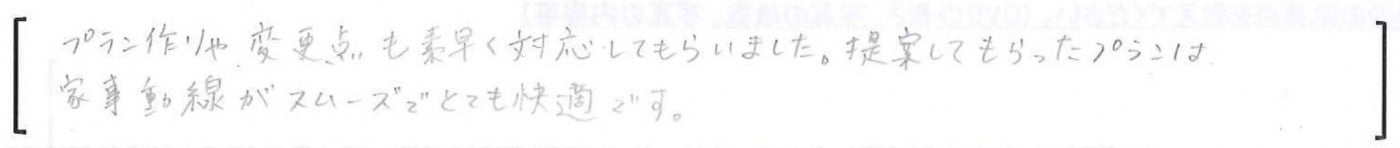 プラン作りや変更点も素早く対応してもらいました。提案してもらったプランは
家事動線がスムーズでとても快適です。